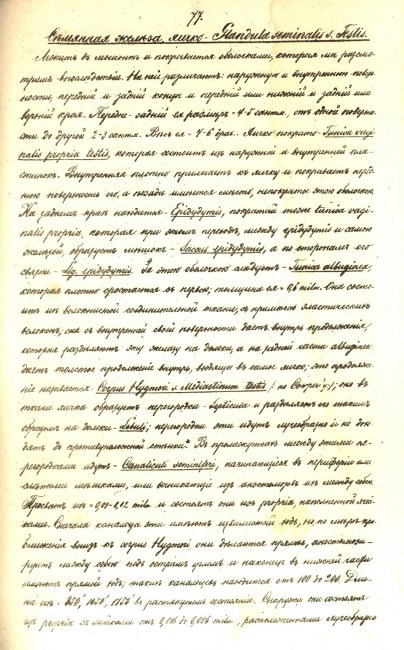 77.
Сѣмянная железа, яичко - Glandula seminalis s. Testis.
Лежитъ въ мошонкѣ и покрывается оболочками, которыя мы разсмо-
тримъ впослѣдствіи. На ней различаютъ: наружную и внутреннюю повер-
хности, передній и задній конца и передній или нижній и задній или
верхній края. Передне-задній ея размѣръ - 4-5 сантм., отъ одной поверхно-
сти до другой 2-3 сантм. Вѣсъ ея - 4-6 драх. Яичко покрыто - Tunica vagi-
nalis propria testis, которая состоитъ изъ наружной и внутренней пла-
стинокъ. Внутренняя плотно прилегаетъ къ яичку и покрываетъ
поверхность его, и позади имѣется мѣсто, непокрытое этою оболочкою
На заднемъ краѣ находится - Epididymis, покрытый тоже tunica vagi-
nalis propria, которая при этомъ переходѣ между epididymis и самою
железой, образуетъ мѣшокъ - Saccus epididymis, а по сторонамъ его
связки - Lig. epididymis. За этою оболочкою слѣдуетъ - Tunica albuginea,
которая плотно сростается съ первою; толщина ея - 0,6 mlm. Она состо-
итъ изъ волокнистой соединительной ткани, съ примѣсью эластическихъ
волоконъ, она съ внутренней своей поверхности даетъ внутрь продолженія,
которыя раздѣляютъ эту железу на дольки, а на задней части albuginea
даетъ толстое продолженіе внутрь, входящее въ самое яичко; это продолже-
ніе называется - Corpus Hygmori s. Mediastinum testis (по Cooper'у); оно въ
ткани яичка образуетъ перегородки - Septicula и раздѣляетъ его такимъ
образомъ на дольки - Lobuli; перегородки эти идутъ лучеобразно и не дохо-
дятъ до противуположной стѣнки. Въ промежуткахъ между этими пе-
регородками идутъ - Canaliculi seminiferi, начинающіеся въ периферіи или
слѣпыми мѣшками, или вытекающіе изъ анастомозъ ихъ между собою.
Просвѣтъ ихъ - 0,01-0,12 mlm. и состоятъ они изъ propria, наполненной клѣтк-
ами. Сначала каналы эти имѣютъ извилистый ходъ, но по мѣрѣ при-
ближенія внизъ къ corpus Hygmori они дѣлаются прямы, анастомози-
руютъ между собою подъ острымъ угломъ и наконецъ въ нижней части
имѣютъ прямой ходъ; такихъ канальцевъ находится отъ 100 до 200. Дли-
на ихъ - 850', 1050', 1750' въ растянутомъ состояніи. Снаружи они состоятъ
изъ propria съ клѣтками отъ 0,003 до 0,006 mlm., расположенными лучеобразно